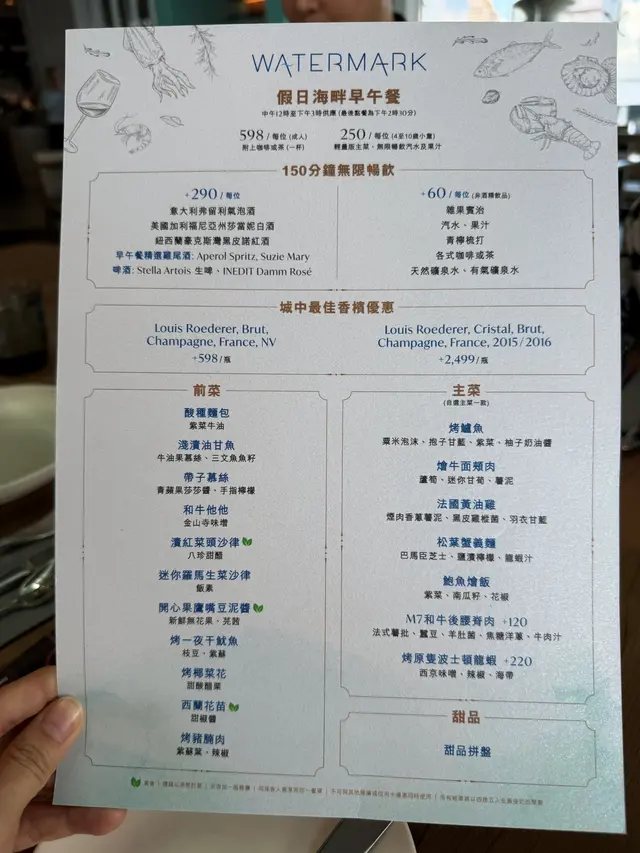 WATERMARK
假日海畔早午餐
中午12時至下午3時供應 (最後點餐為下午2時30分)
598 / 每位 (成人)
附上咖啡或茶 (一杯)
250 / 每位 (4至10歲小童)
輕量版主菜、無限暢飲汽水及果汁
150分鐘無限暢飲
+290 / 每位
意大利弗留利氣泡酒
美國加利福尼亞州莎當妮白酒
紐西蘭豪克斯灣黑皮諾紅酒
早午餐精選雞尾酒: Aperol Spritz, Suzie Mary
啤酒: Stella Artois 生啤、INEDIT Damm Rosé
+60 / 每位 (非酒精飲品)
雜果賓治
汽水、果汁
青檸梳打
各式咖啡或茶
天然礦泉水、有氣礦泉水
城中最佳香檳優惠
Louis Roederer, Brut,
Champagne, France, NV
+598 / 瓶
Louis Roederer, Cristal, Brut,
Champagne, France, 2015 / 2016
+2,499 / 瓶
前菜
酸種麵包
紫菜牛油
淺漬油甘魚
牛油果慕絲、三文魚魚籽
帶子慕絲
青蘋果莎莎醬、手指檸檬
和牛他他
金山寺味噌
漬紅菜頭沙律
八珍甜醋
迷你羅馬生菜沙律
飯素
開心果鷹嘴豆泥醬
新鮮無花果、芫茜
烤一夜干魷魚
枝豆、紫蘇
烤椰菜花
甜酸醋栗
西蘭花苗
甜椒醬
烤豬腩肉
紫蘇葉、辣椒
主菜
(自選主菜一款)
烤鱸魚
粟米泡沫、抱子甘藍、紫菜、柚子奶油醬
燴牛面頰肉
蘆筍、迷你甘筍、薯泥
法國黃油雞
煙肉香蔥薯泥、黑皮雞樅菌、羽衣甘藍
松葉蟹義麵
巴馬臣芝士、鹽漬檸檬、龍蝦汁
鮑魚燴飯
紫菜、南瓜籽、花椒
M7和牛後腰脊肉 +120
法式薯批、蠶豆、羊肚菌、焦糖洋蔥、牛肉汁
烤原隻波士頓龍蝦 +220
西京味噌、辣椒、海帶
甜品
甜品拼盤
素食